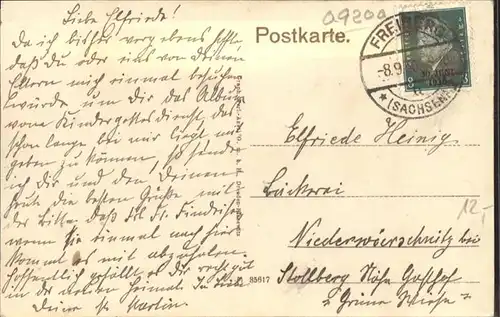 Liebe Elfriede!
Da ich bisher vergebens hoffte
daß du oder eins von Deinen
Eltern mich einmal besuchen
würde um dir das Album
vom Kindergottesdienst, das
schon lange bei mir liegt mit
geben zu können, so sende
ich dir und den Deinen
heute die besten Grüße mit
der Bitte, daß Fr. Findeisen
wenn sie einmal nach hier
kommt es mit abzuholen.
Hoffentlich gefällt es dir recht gut
in der neuen Heimat. In Liebe
Deine Martin.
Postkarte.
FREIBERG
-8.9.
(SACHSEN)
8
Elfriede Heinig
Bäckerei
Niederwürschnitz bei
Stollberg Nähe Gasthof
"Grüne Wiese"
12,-
85617